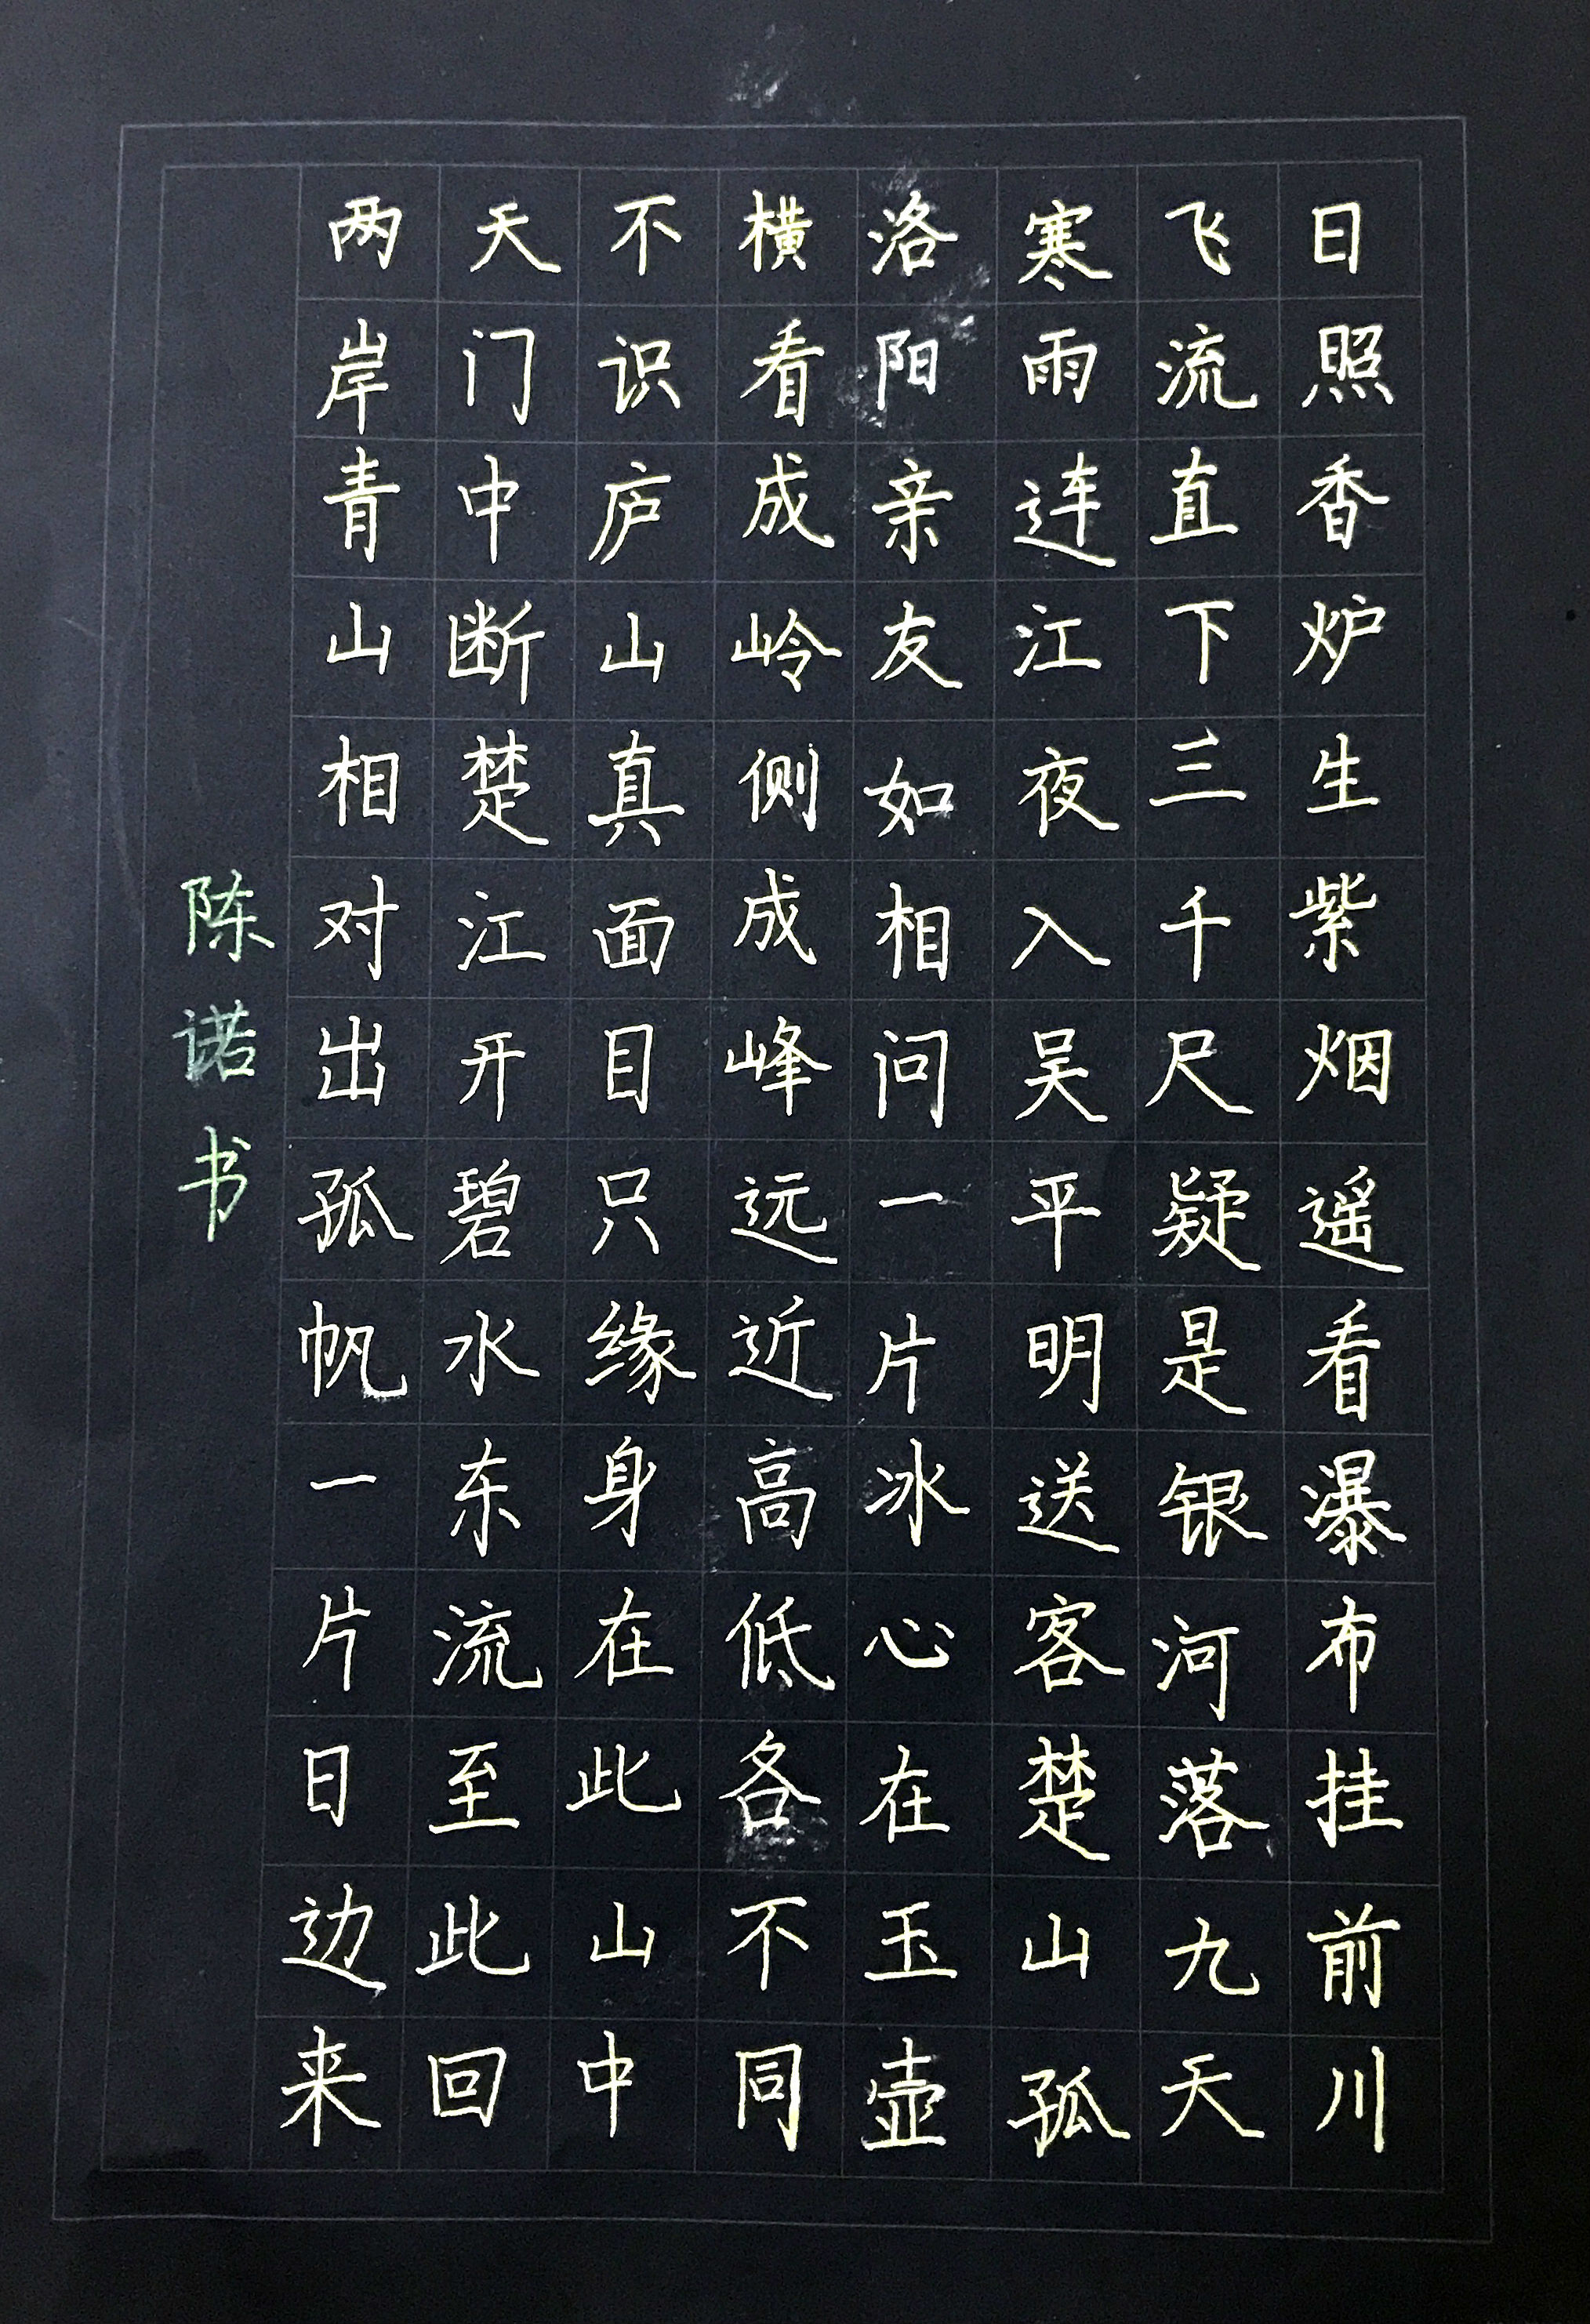 日照香炉生紫烟遥看瀑布挂前川
飞流直下三千尺疑是银河落九天
寒雨连江夜入吴平明送客楚山孤
洛阳亲友如相问一片冰心在玉壶
横看成岭侧成峰远近高低各不同
不识庐山真面目只缘身在此山中
天门中断楚江开碧水东流至此回
两岸青山相对出孤帆一片日边来
陈诺书